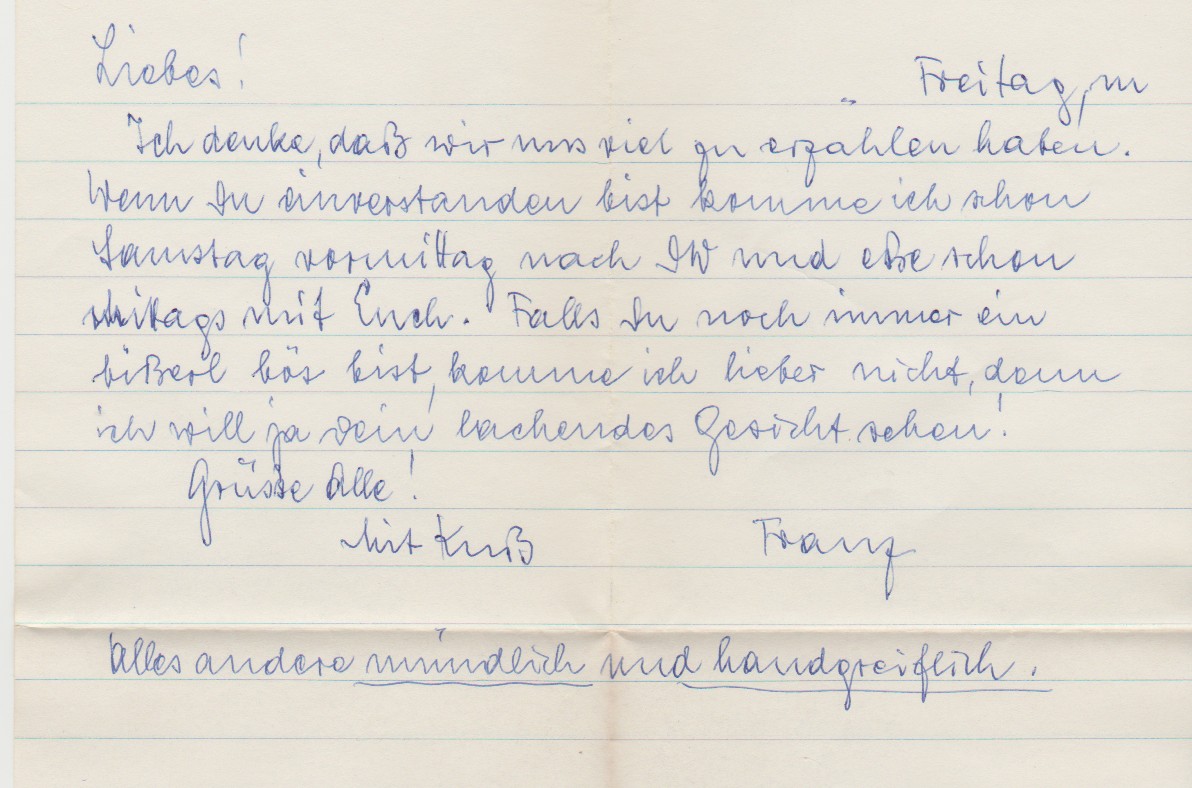 Liebes!
Freitag, m
Ich denke, daß wir uns viel zu erzählen haben.
Wenn Du einverstanden bist komme ich schon
Samstag vormittag nach DW und eße schon
mittags mit Euch. Falls Du noch immer ein
bißerl bös bist, komme ich lieber nicht, denn
ich will ja Dein lachendes Gesicht sehen!
Grüsse Alle!
Mit Kuß Franz
Alles andere mündlich und handgreiflich.